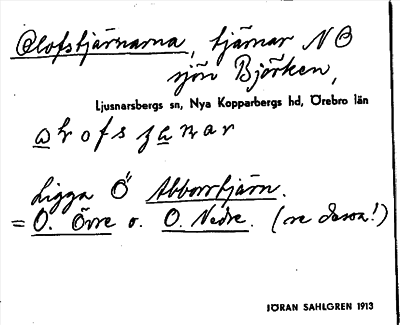 Olofstjärnarna, tjärnar NO
sjön Björken,
Ljusnarsbergs sn, Nya Kopparbergs hd, Örebro län
Ligga Ö Abborrtjärn.
= O. Övre o. O. Nedre. (se dessa!)
JÖRAN SAHLGREN 1913